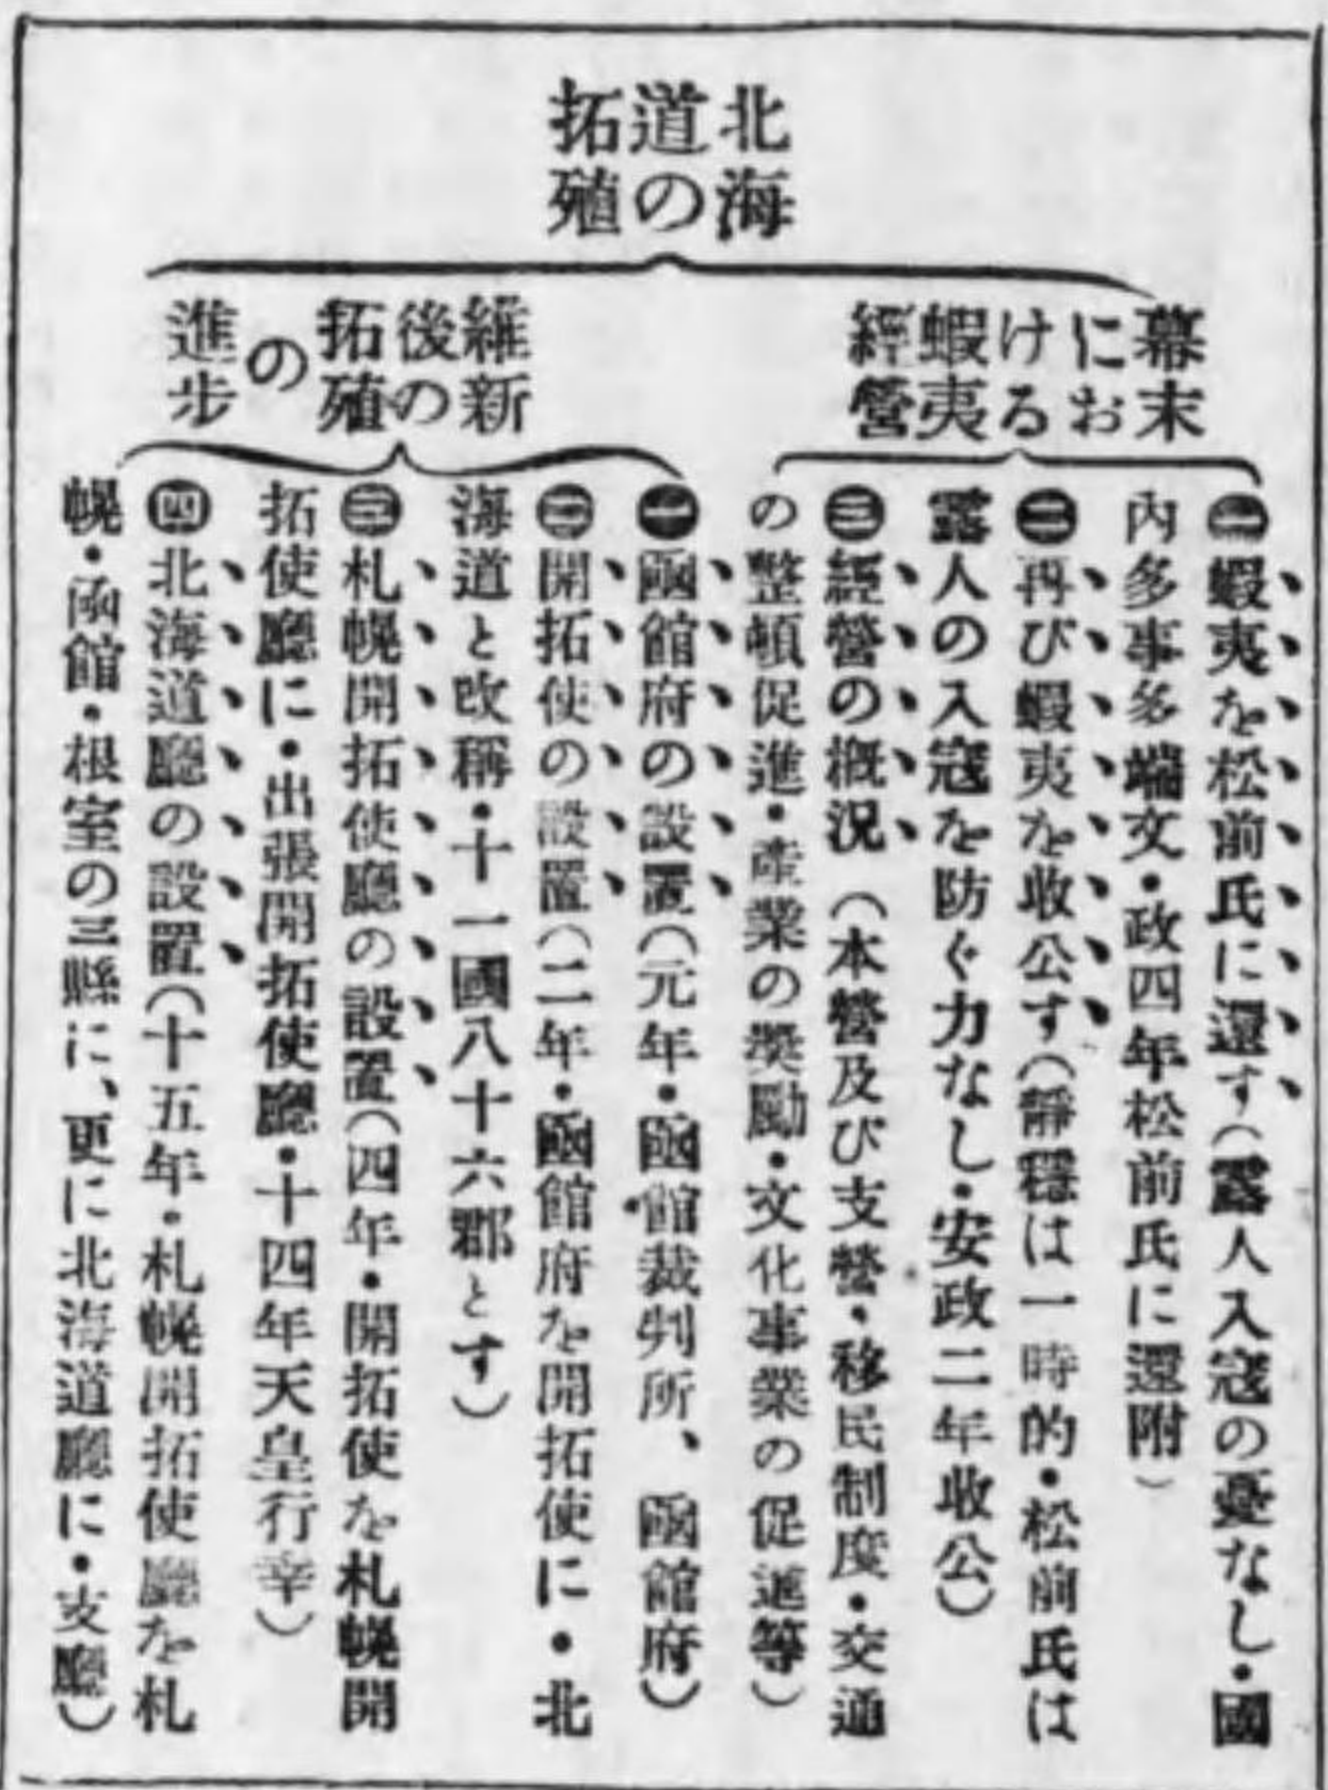 北海
道の
拓殖
幕末
にお
ける
蝦夷
經營
㊀蝦夷を松前氏に還す(露人入寇の憂なし・國
內多事多端文・政四年松前氏に還附)
㊁再び蝦夷を收公す(靜穩は一時的・松前氏は
露人の入寇を防ぐ力なし・安政二年收公)
㊂經營の槪況(本營及び支營・移民制度・交通
の整頓促進・產業の奬勵・文化事業の促進等)
維新
後の
拓殖
の
進步
㊀凾館府の設置(元年・凾館裁判所、凾館府)
㊁開拓使の設置(二年・凾館府を開拓使に・北
海道と改稱・十一國八十六郡とす)
㊂札幌開拓使廳の設置(四年・開拓使を札幌開
拓使廳に・出張開拓使廳・十四年天皇行幸)
㊃北海道廳の設置(十五年・札幌開拓使廳を札
幌・函館・根室の三縣に、更に北海道廳に・支廳)